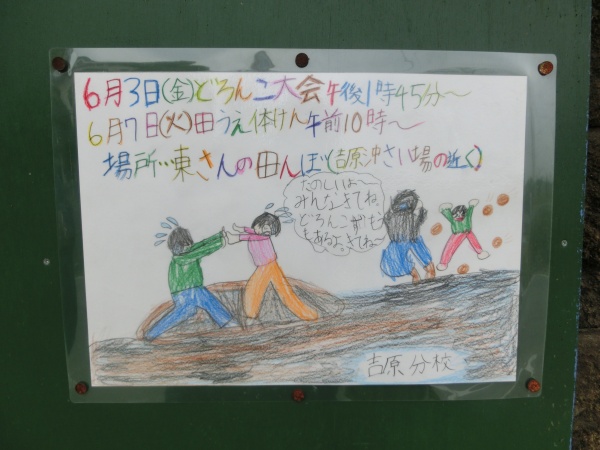 6月3日(金)どろんこ大会午後1時45分〜
6月7日(火)田うえ体けん午前10時〜
場所…東さんの田んぼ(吉原沖さい場の近く)
たのしいよ〜
みんなきてね
どろんこ
もあるよきてね〜
吉原分校